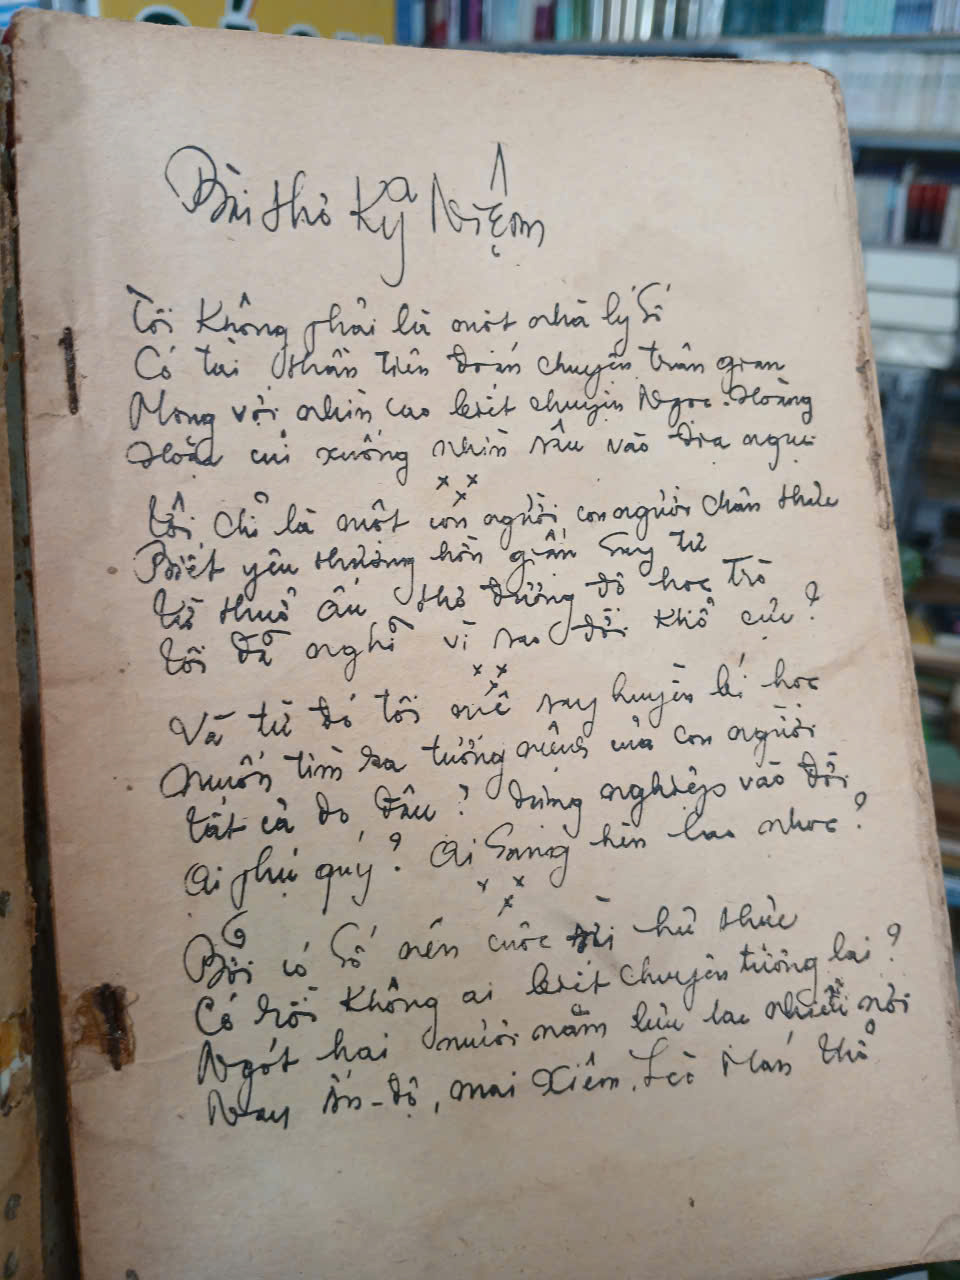 Bài thơ Kỷ Niệm
Tôi Không phải là một nhà lý số
Có tài thần tiên đoán chuyện trần gian
Mong với nhìn cao biết chuyện Ngọc-Hoàng
Hoặc cúi xuống nhìn sâu vào địa ngục
Tôi chỉ là một con người, con người chân thức
Biết yêu thương hờn giận say tư
Từ thuở ấu thơ đường đô học trò
Tôi đã nghĩ vì sao đời khổ cực?
Và từ đó tôi mê say huyền bí học
Muốn tìm ra tướng mệnh của con người
Tất cả do đâu? dựng nghiệp vào đời
Ai phú quý? Ai sang hèn lao nhọc?
Bởi có số nên cuộc đời hư thức
Có rồi không ai biết chuyện tương lai?
Ngót hai mươi năm lưu lạc nhiều nơi
Nay Ấn-Độ, mai Xiêm, Lèo Mán Thổ